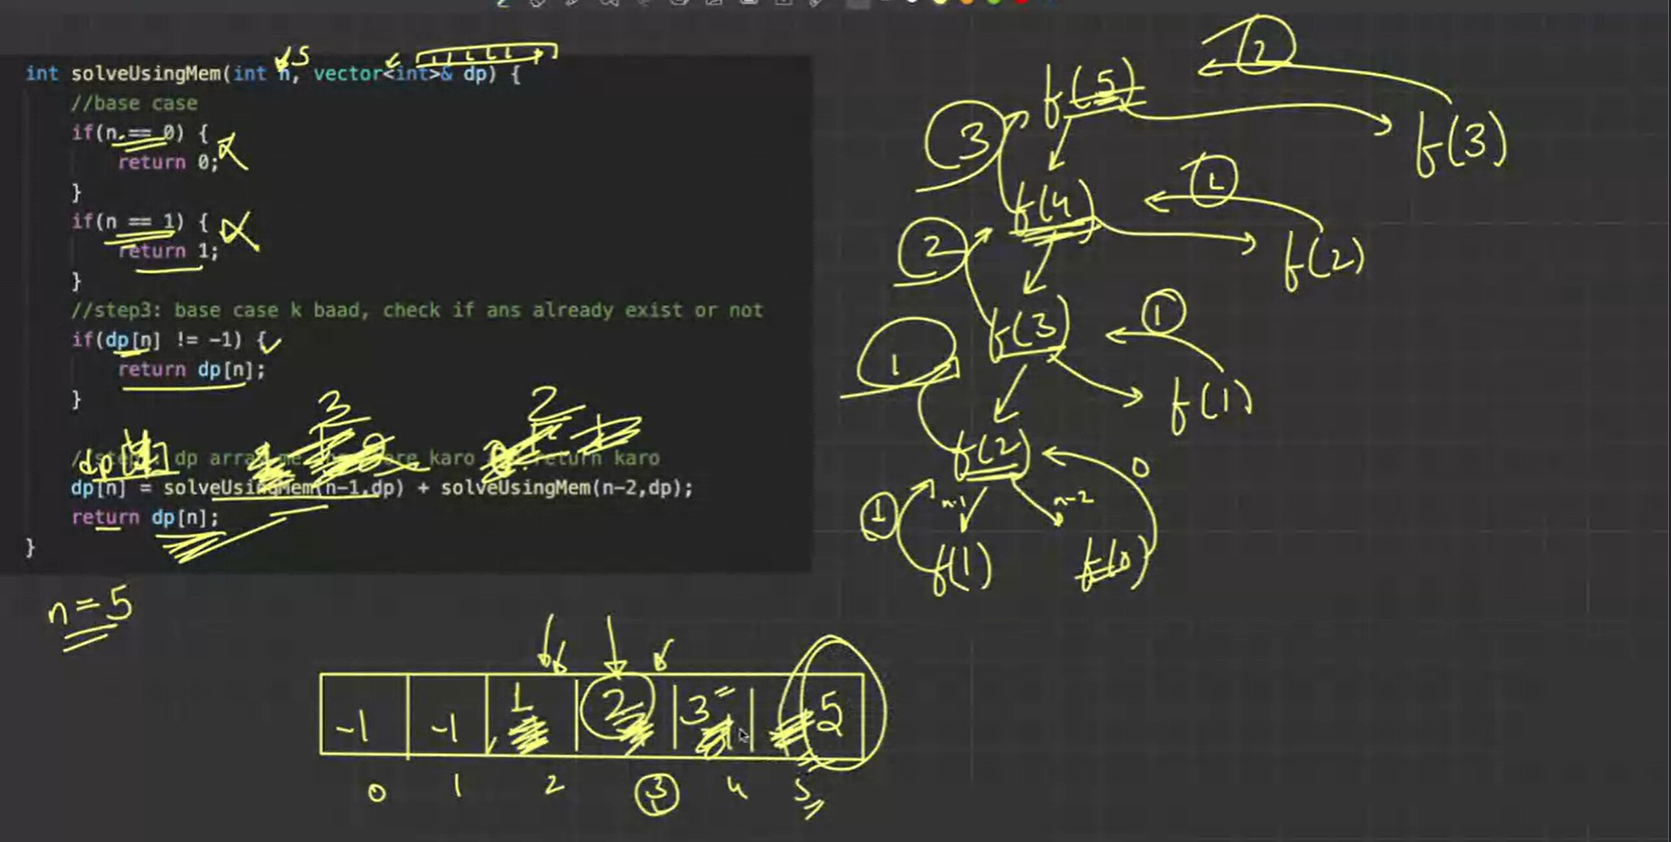 ↙5
int solveUsingMem(int n, vector<int>& dp) {
//base case
if(n == 0) {
return 0;
}
if(n == 1) {
return 1;
}
//step3: base case k baad, check if ans already exist or not
if(dp[n] != -1) {
return dp[n];
}
3 2
dp[4]
karo return karo
dp[n] = solveUsingMem(n-1,dp) + solveUsingMem(n-2,dp);
return dp[n];
}
n=5
-1 -1 1 2 3 5
0 1 2 3 4 5
2
f(5)
f(3)
3
1
f(4)
f(2)
2
1
f(3)
f(1)
1
f(2)
0
1 n-1 n-2
f(1) f(0)